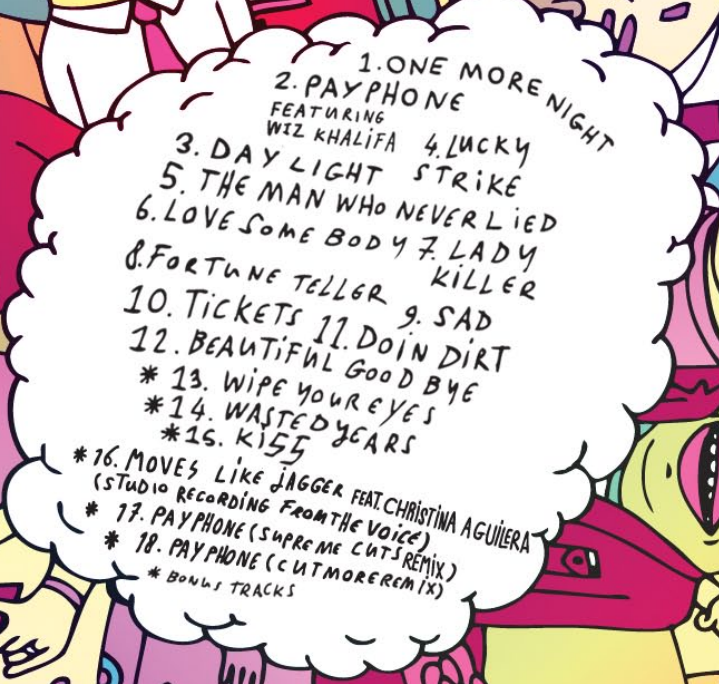 1. ONE MORE NIGHT
2. PAYPHONE
FEATURING
WIZ KHALIFA
3. DAYLIGHT
4. LUCKY
STRIKE
5. THE MAN WHO NEVER LIED
6. LOVE SOMEBODY
7. LADY
KILLER
8. FORTUNE TELLER
9. SAD
10. TICKETS
11. DOIN DIRT
12. BEAUTIFUL GOODBYE
* 13. WIPE YOUR EYES
* 14. WASTED YEARS
* 15. KISS
* 16. MOVES LIKE JAGGER FEAT. CHRISTINA AGUILERA
(STUDIO RECORDING FROM THE VOICE)
* 17. PAYPHONE (SUPREME CUTS REMIX)
* 18. PAYPHONE (CUTMORE REMIX)
* BONUS TRACKS